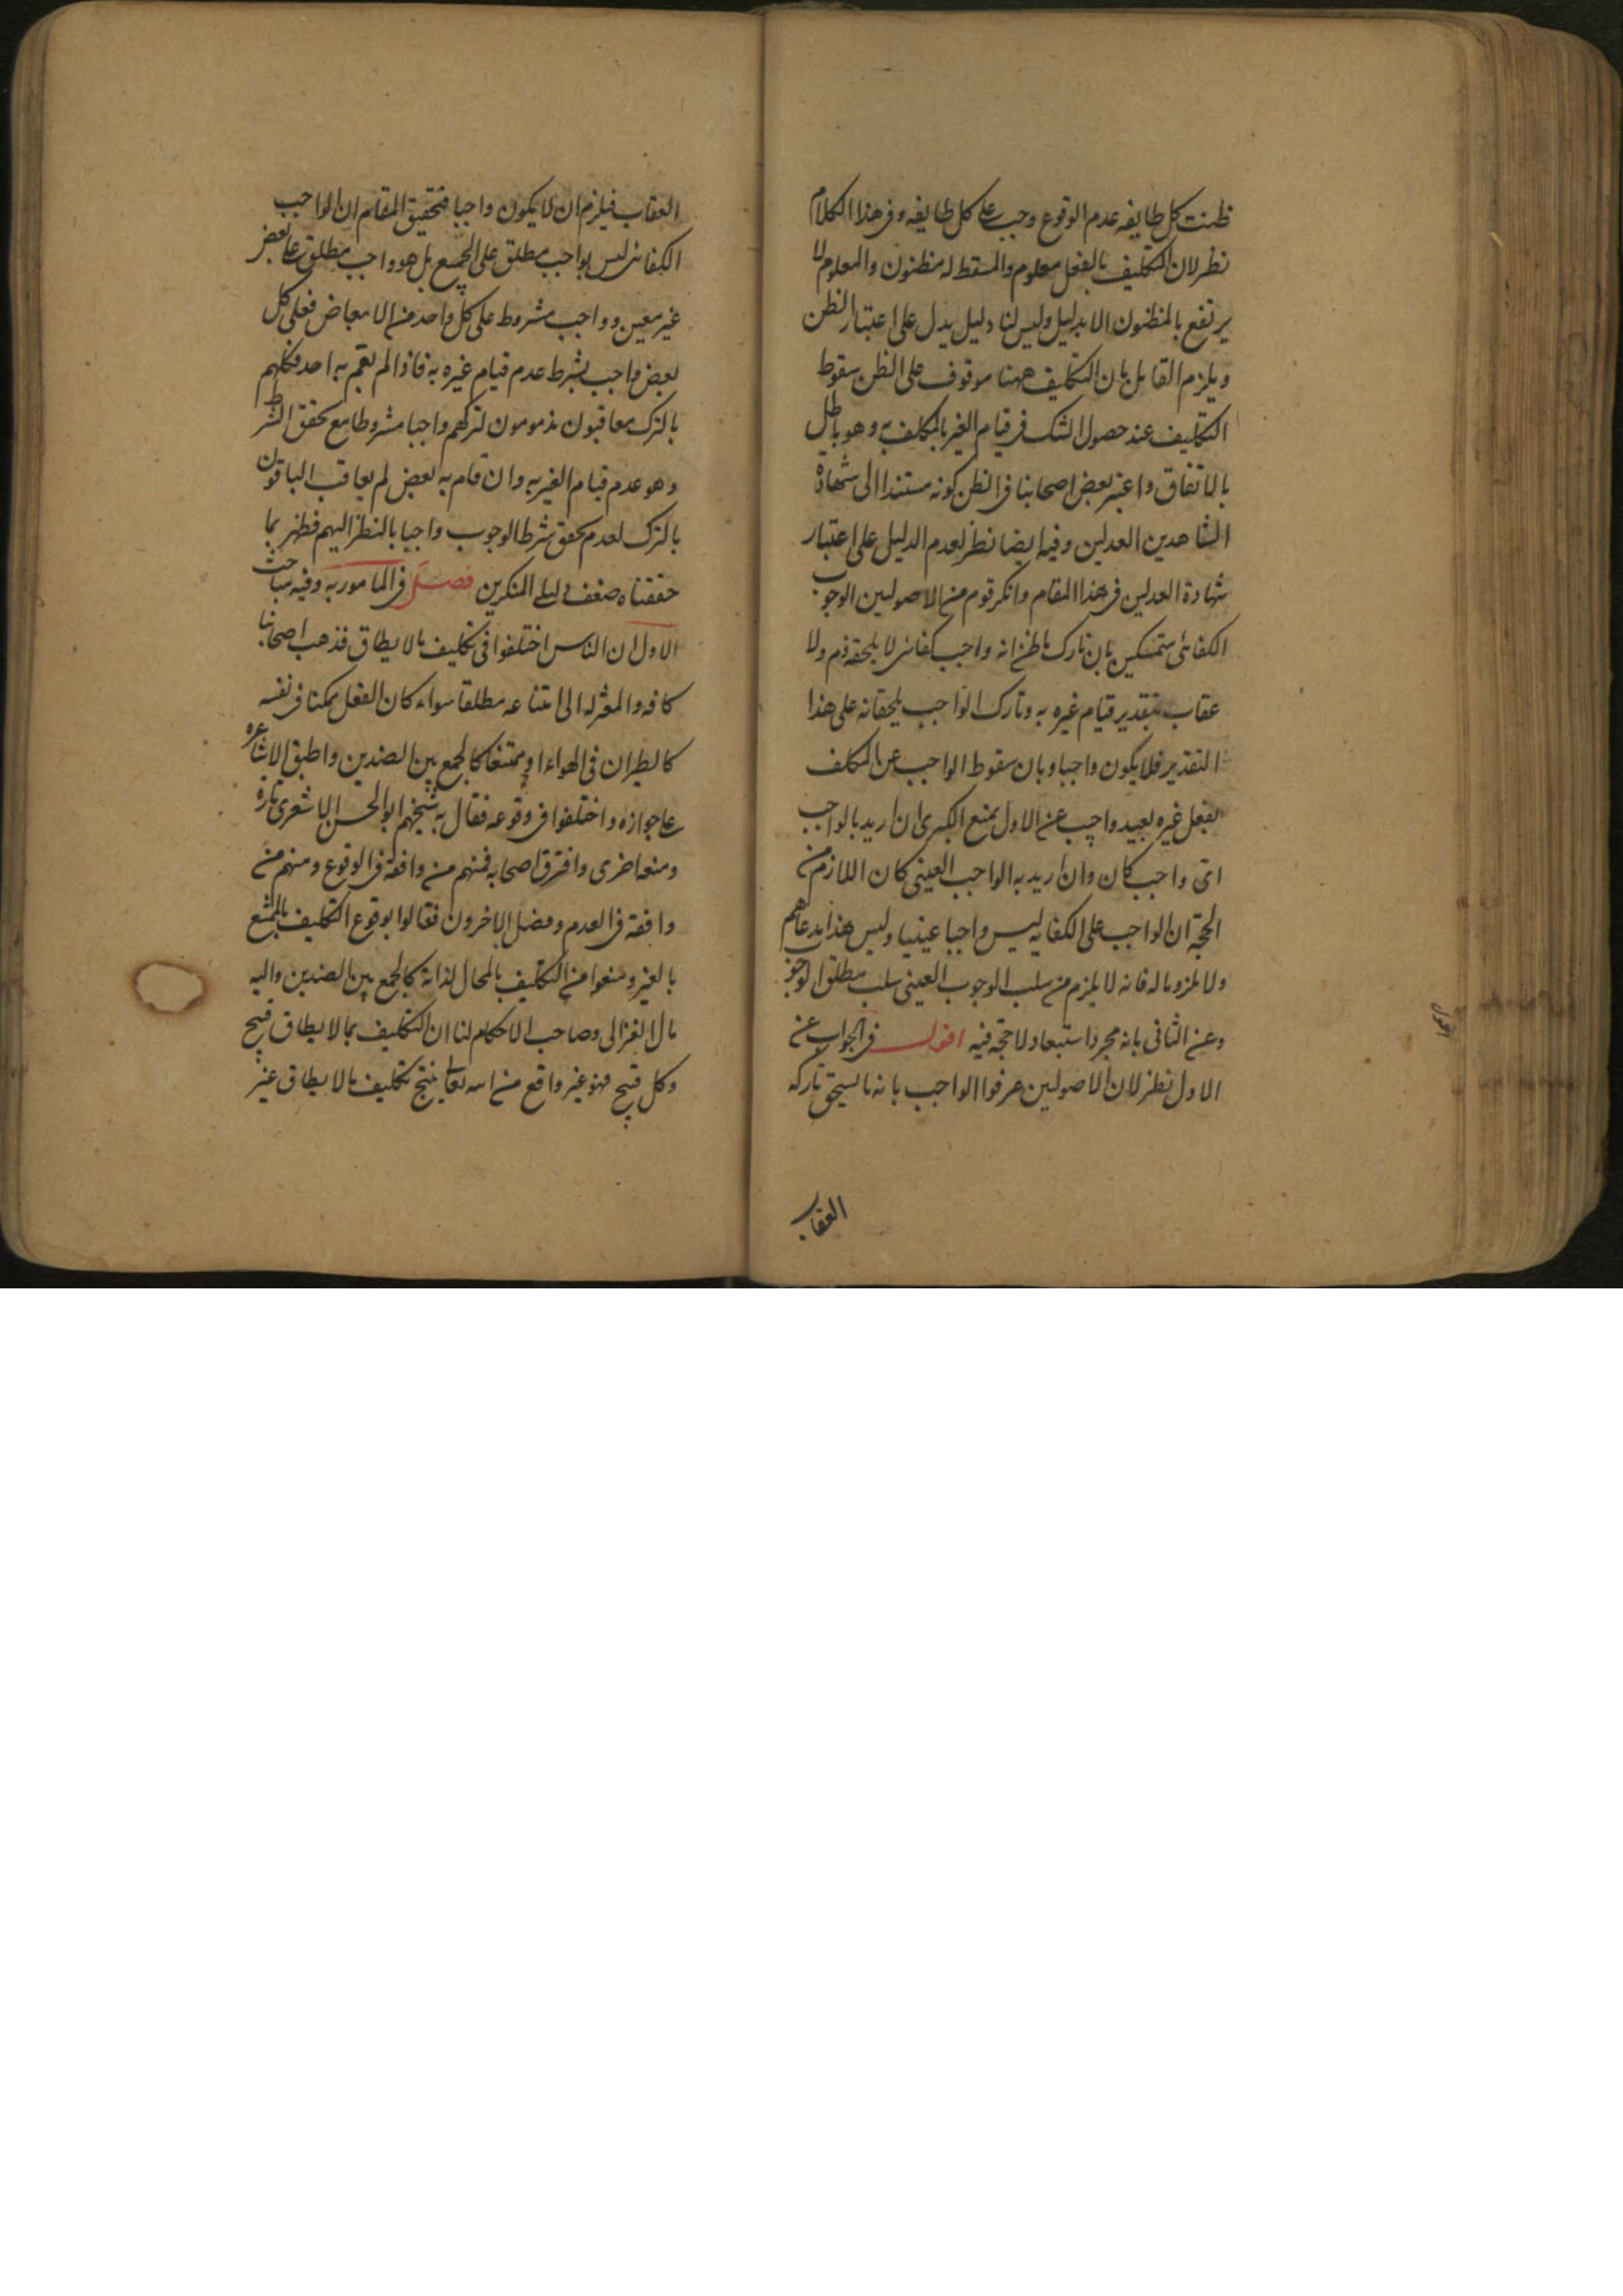 ظنت كل طايفه عدم الوقوع وجب على كل طايفه وفى هذا الكلام
نظر لان التكليف بالفعل معلوم والمسقط له مظنون والمعلوم لا
يرتفع بالمظنون الا بدليل وليس لنا دليل يدل على اعتبار الظن
ويلزم القايل بان التكليف ههنا موقوف على الظن سقوط
التكليف عند حصول الشك فى قيام الغير بالمكلف به وهو باطل
بالاتفاق واعتبر بعض اصحابنا فى الظن كونه مستندا الى شهادة
الشاهدين العدلين وفيه ايضا نظر لعدم الدليل على اعتبار
شهادة العدلين فى هذا المقام وانكر قوم من الاصوليين الوجوب
الكفائى متمسكين بان تارك ما ظن انه واجب كفائى لا يلحقه ذم ولا
عقاب بتقدير قيام غيره به وتارك الواجب يلحقانه على هذا
التقدير فلا يكون واجبا وبان سقوط الواجب عن المكلف
بفعل غيره بعيد واجيب عن الاول بمنع الكبرى ان اريد بالواجب
اى واجب كان وان اريد به الواجب العينى كان اللازم من
الحجة ان الواجب على الكفايه ليس واجبا عينيا وليس هذا مدعاهم
ولا ملزوما له فانه لا يلزم من سلب الوجوب العينى سلب مطلق الوجوب
وعن الثانى بانه مجرد استبعاد لا حجة فيه اقول فى الجواب عن
الاول نظر لان الاصوليين عرفوا الواجب بانه ما يستحق تاركه
العقاب
العقاب فيلزم ان لا يكون واجبا فتحقيق المقام ان الواجب
الكفائى ليس بواجب مطلق على الجميع بل هو واجب مطلق على بعض
غير معين وواجب مشروط على كل واحد من الابعاض فعلى كل
بعض واجب بشرط عدم قيام غيره به فاذا لم يقم به احد فكلهم
بالترك معاقبون مذمومون لتركهم واجبا مشروطا مع تحقق الشرط
وهو عدم قيام الغير به وان قام به بعض لم يعاقب الباقون
بالترك لعدم تحقق شرط الوجوب واجبا بالنظر اليهم فظهر بما
حققناه ضعف دليلى المنكرين فصل فى المامور به وفيه مباحث
الاول ان الناس اختلفوا فى تكليف ما لا يطاق فذهب اصحابنا
كافه والمعتزله الى امتناعه مطلقا سواء كان الفعل ممكنا فى نفسه
كالطيران فى الهواء او ممتنعا كالجمع بين الضدين واطبق الاشاعره
على جوازه واختلفوا فى وقوعه فقال به شيخهم ابو الحسن الاشعرى تارة
ومنعه اخرى وافترق اصحابه فمنهم من وافقه فى الوقوع ومنهم من
وافقه فى العدم وفصل الاخرون فقالوا بوقوع التكليف بالممتنع
بالغير ومنعوا من التكليف بالمحال لذاته كالجمع بين الضدين واليه
مال الغزالى وصاحب الاحكام لنا ان التكليف بما لا يطاق قبيح
وكل قبيح فهو غير واقع من الله تعالى ينتج تكليف ما لا يطاق غير